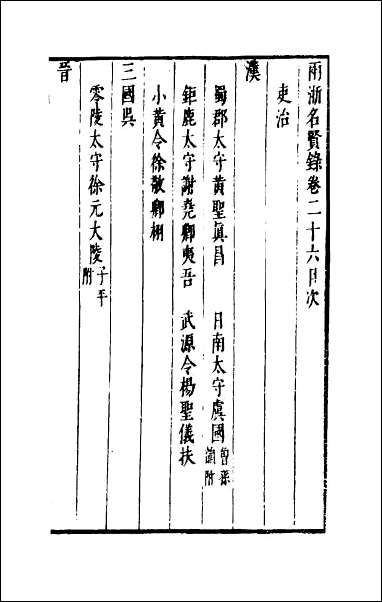 兩浙名賢錄卷二十六目次
吏治
漢
蜀郡太守黃聖眞昌　日南太守虞國曾孫歆附
鉅鹿太守謝堯卿夷吾　武源令楊聖儀扶
小黃令徐敬卿栩
三國吳
零陵太守徐元大陵子平附
晉